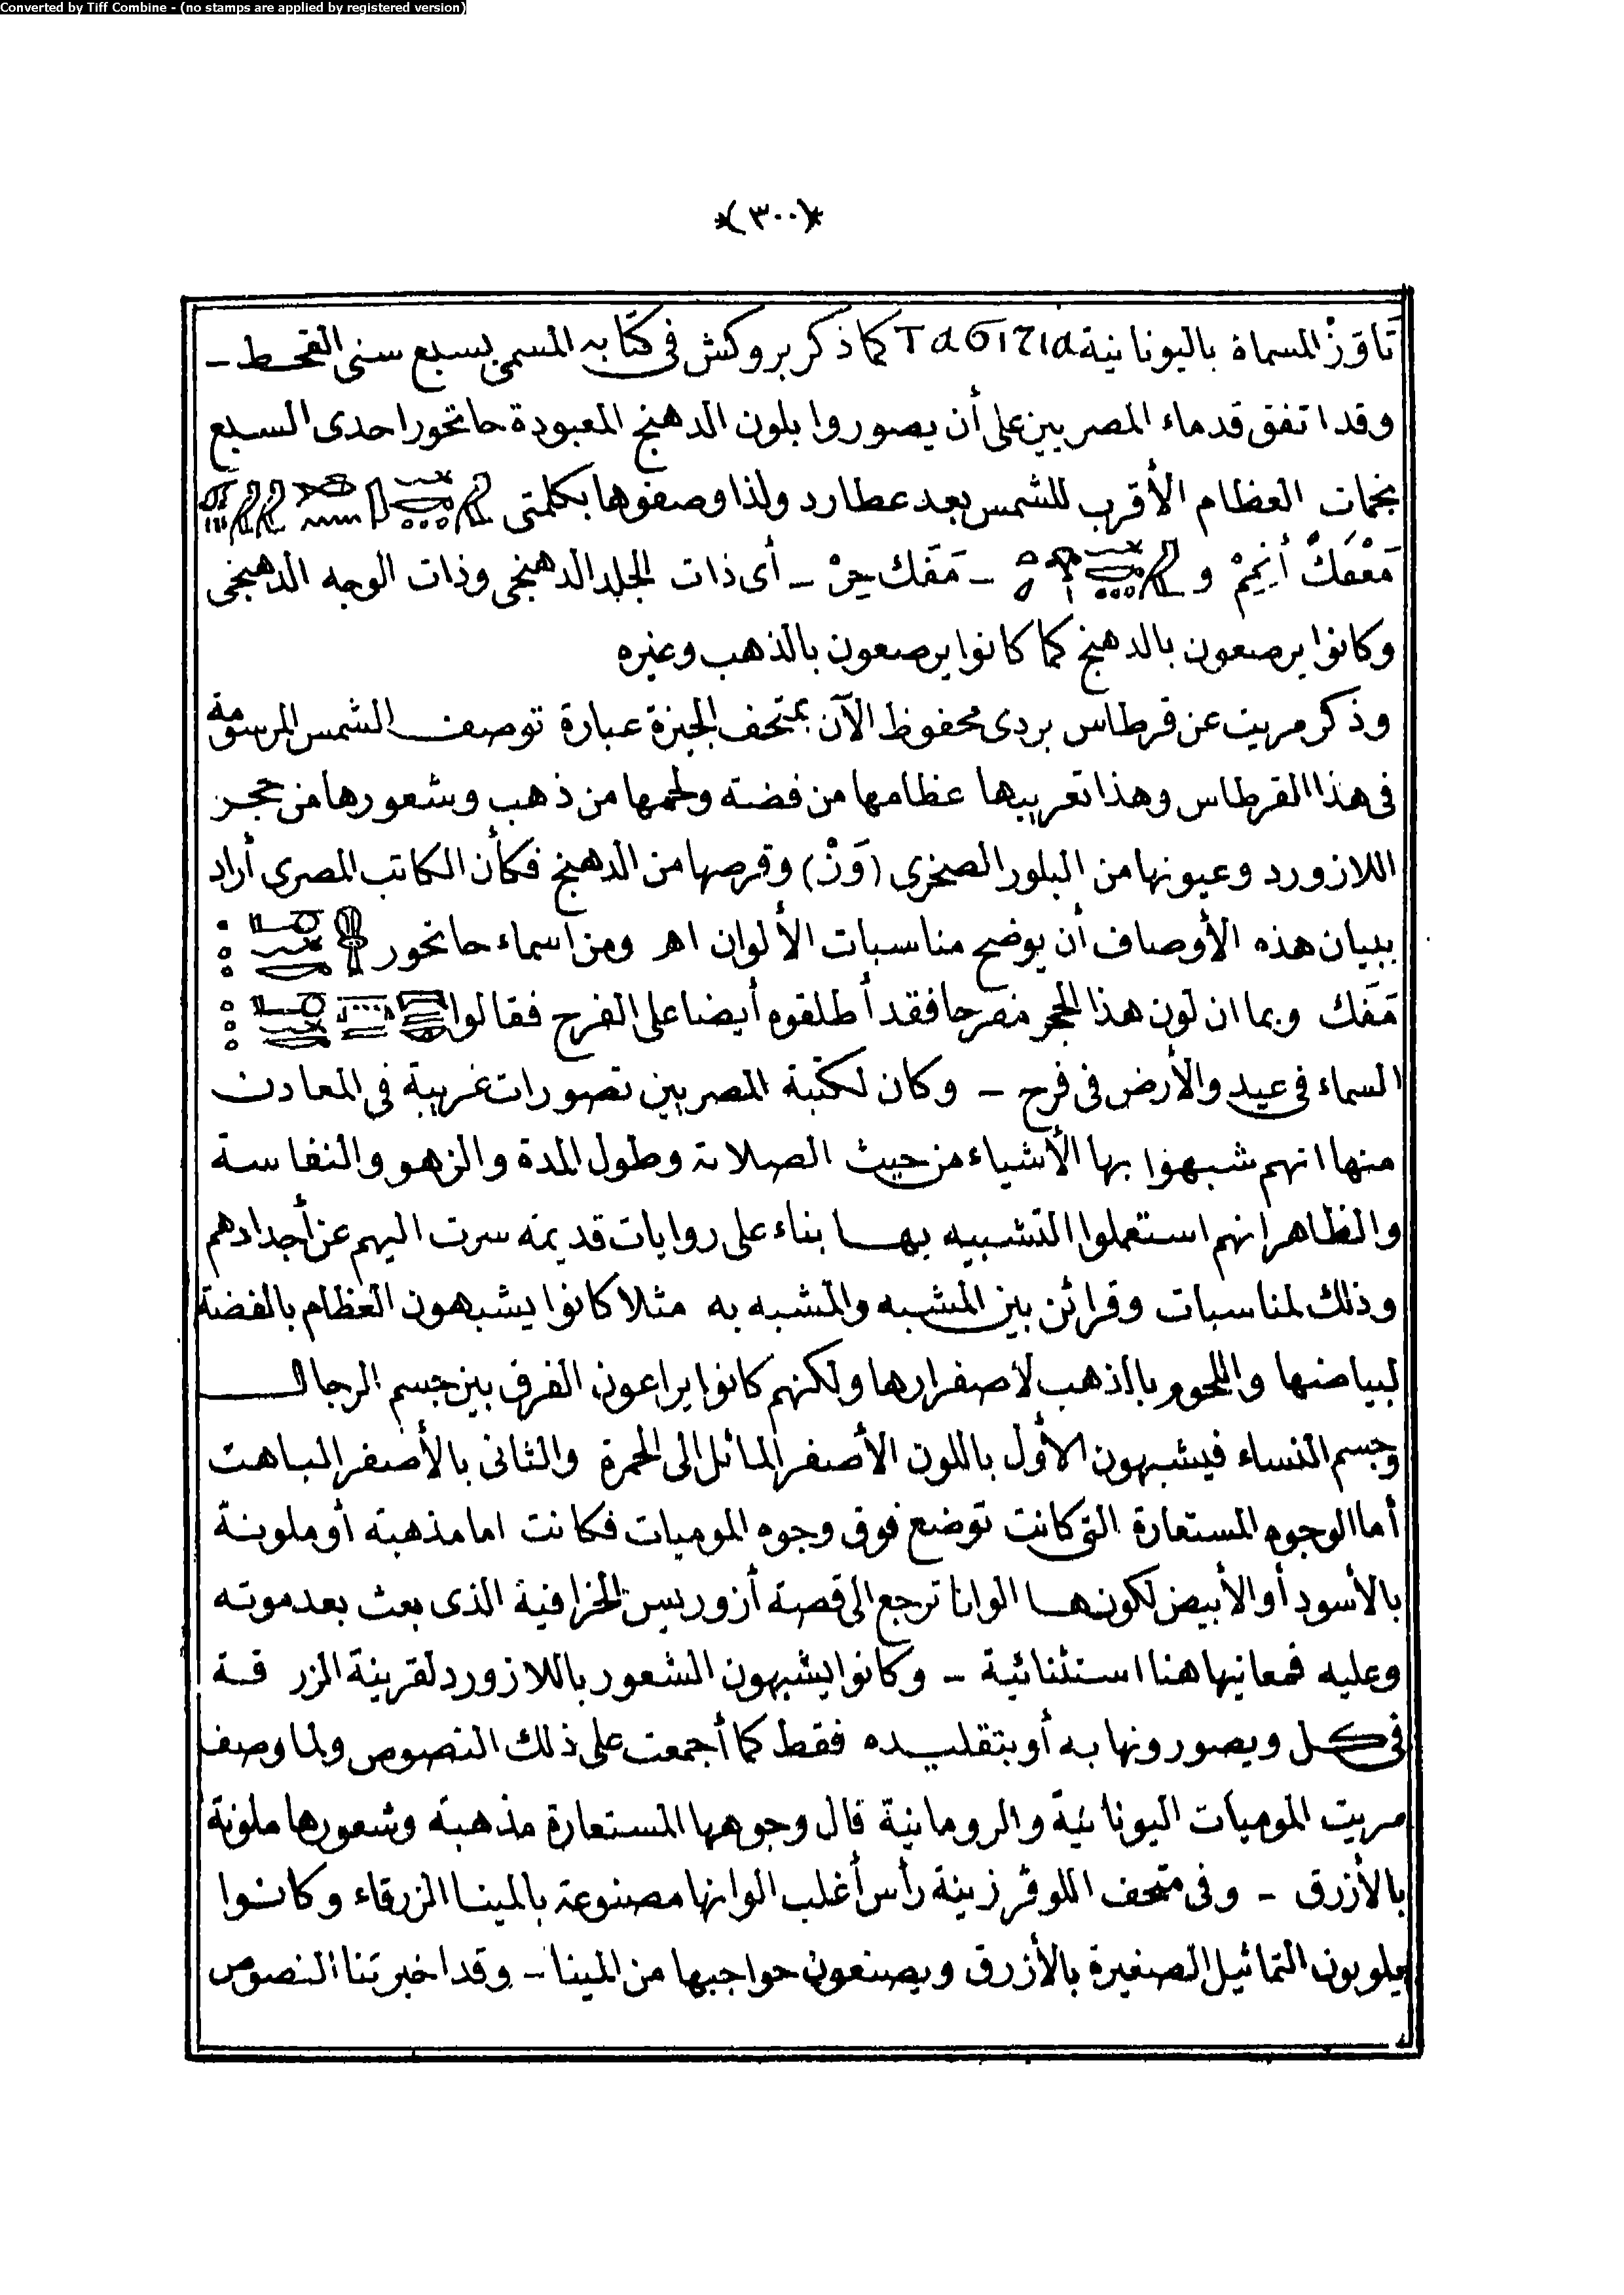 Converted by Tiff Combine - (no stamps are applied by registered version)
*(٣٠٠)*
تَاوَزْ المسماة باليونانية كما ذكر بروكش فى كتابه المسمى بسبع سنى القحط ـ
وقد اتفق قدماء المصريين على أن يصوروا بلون الدهنج المعبودة حاتحور احدى السبع
نجمات العظام الأقرب للشمس بعد عطارد ولذا وصفوها بكلمتى
مَفْعَكْ أنِمِمْ و ـ مَفَك حِرْ ـ أى ذات الجلد الدهنجى وذات الوجه الدهنجى
وكانوا يرصعون بالدهنج كما كانوا يرصعون بالذهب وغيره
وذكر مريت عن قرطاس بردى محفوظ الآن بمتحف الجيزة عبارة توصف الشمس المرسومة
فى هذا القرطاس وهذا تعريبها عظامها من فضة ولحمها من ذهب وشعورها من حجر
اللازورد وعيونها من البلور الصخرى (وَزْ) وقرصها من الدهنج فكأن الكاتب المصرى أراد
ببيان هذه الأوصاف أن يوضح مناسبات الألوان اهـ ومن اسماء حاتحور
مَفَك وبما ان لون هذا الحجر مفرحا فقد أطلقوه أيضا على الفرح فقالوا
السماء فى عيد والأرض فى فرح ـ وكان لكتبة المصريين تصورات غريبة فى المعادن
منها انهم شبهوا بها الأشياء من حيث الصلابة وطول المدة والزهو والنفاسة
والظاهر انهم استعملوا التشبيه بها بناء على روايات قديمة سرت اليهم عن أجدادهم
وذلك لمناسبات وقرائن بين المشبه والمشبه به مثلا كانوا يشبهون العظام بالفضة
لبياضها واللحوم بالذهب لاصفرارها ولكنهم كانوا يراعون الفرق بين جسم الرجال
وجسم النساء فيشبهون الأول باللون الأصفر المائل الى الحمرة والثانى بالأصفر الباهت
أما الوجوه المستعارة التى كانت توضع فوق وجوه الموميات فكانت اما مذهبة أو ملونة
بالأسود أو الأبيض لكونها الوانا ترجع الى قصة أزوريس الخرافية الذى بعث بعد موته
وعليه فمعانيها هنا استثنائية ـ وكانوا يشبهون الشعور باللازورد لقرينة الزرقة
فى كل ويصورونها به أو بتقليده فقط كما أجمعت على ذلك النصوص ولما وصف
مريت الموميات اليونانية والرومانية قال وجوهها المستعارة مذهبة وشعورها ملونة
بالأزرق ـ وفى متحف اللوڤر زينة رأس أغلب الوانها مصنوعة بالمينا الزرقاء وكانوا
يلونون التماثيل الصغيرة بالأزرق ويصنعون حواجبها من المينا ـ وقد اخبرتنا النصوص